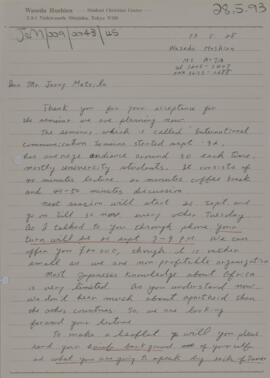 Waseda Hoshien — Student Christian Center
2-3-1 Nishiwaseda Shinjuku, Tokyo
28.5.93
93 5 28
Waseda Hoshien
Dear Mr. Jerry Matsila
Thank you for your acceptance for
the seminar we are planning now.
The seminar, which is called "International
communication Seminar started sept
has average audience around 30 each time,
mostly university students. It consists of
40 minutes lecture, 20 minutes coffee break
and 40-50 minutes discussion.
Next session will start in Sept. and
go on till 30 Nov. every other Tuesday.
As I talked to you through phone your
turn will be on sept 7-9 PM. We can
offer you ¥20,000, though it is rather
small as we are non profitable organization
Most Japanese knowledge about Africa
is very limited. As you understand now
we don't hear much about apartheid than
the other countries. So, we are looking
forward your lecture.
To make a leaflet will you please
send your brief back ground of your self
and what you are going to speak by